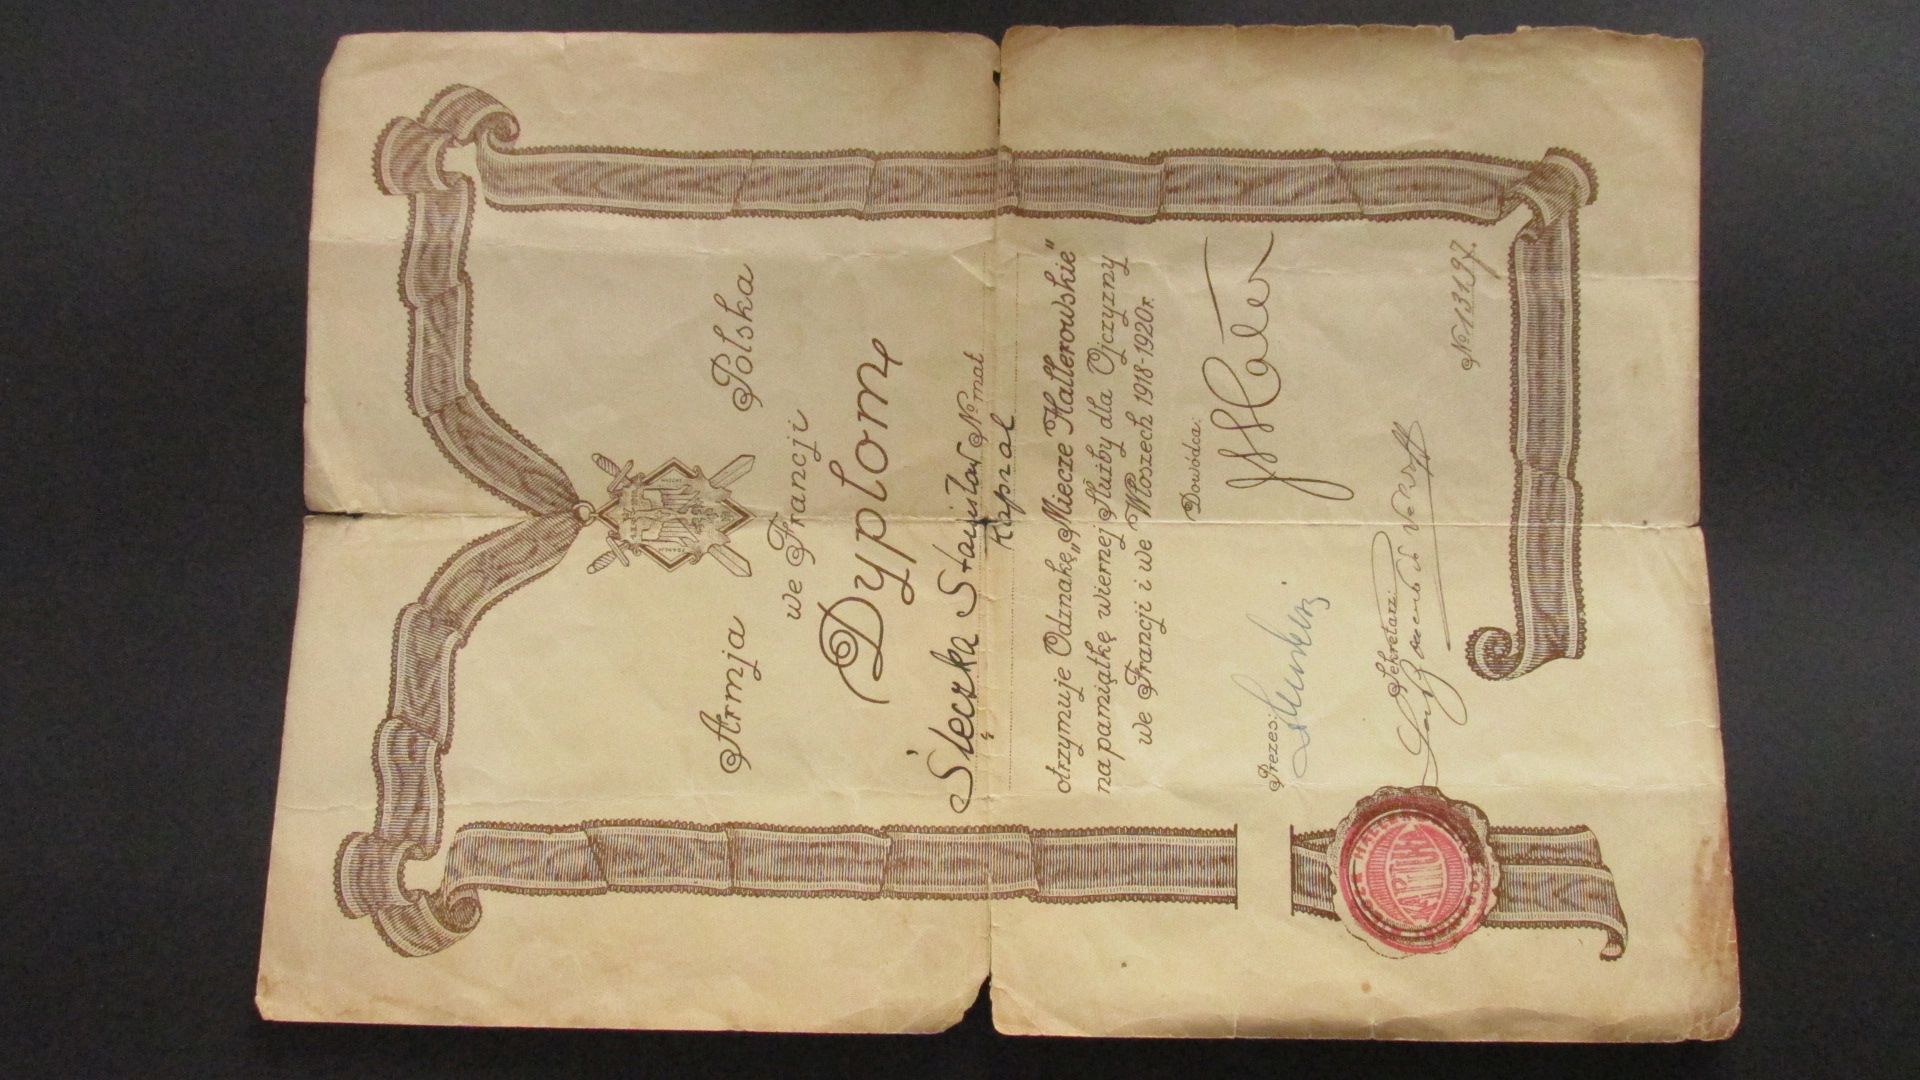 Armja Polska
we Francji
Dyplom
Ślęczka Stanisław № mat
Kapral
otrzymuje Odznakę „Miecze Hallerowskie"
na pamiątkę wiernej służby dla Ojczyzny
we Francji i we Włoszech 1918-1920 r.
Dowódca:
J Haller
Prezes:
Sekretarz:
№ 13197.